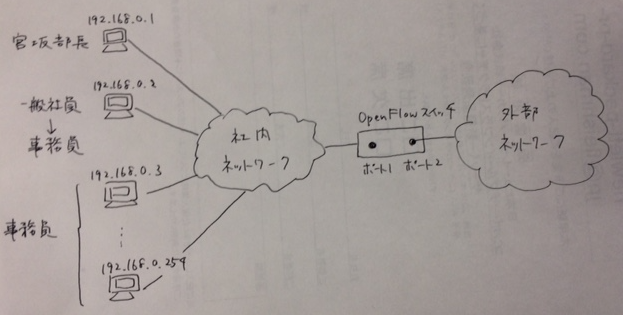 192.168.0.1
宮坂部長
192.168.0.2
一般社員
↓
事務員
192.168.0.3
事務員
⋮
192.168.0.254
社内
ネットワーク
OpenFlowスイッチ
ポート1 ポート2
外部
ネットワーク